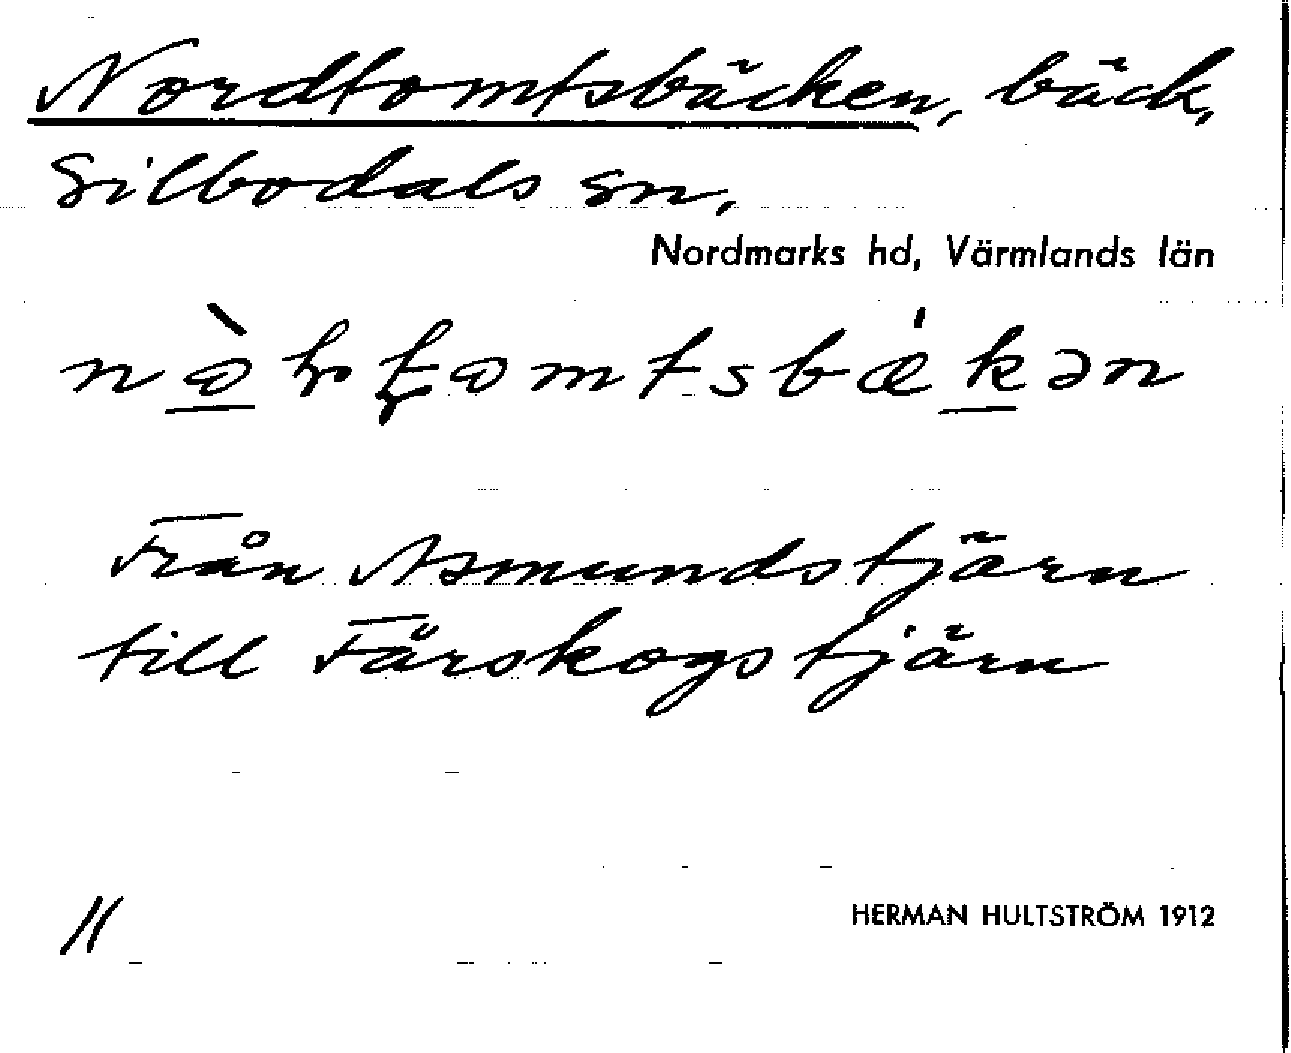 Nordtomtsbäcken, bäck,
Silbodals sn,
Nordmarks hd, Värmlands län
Från Asmundstjärn
till Färskogstjärn
11
HERMAN HULTSTRÖM 1912